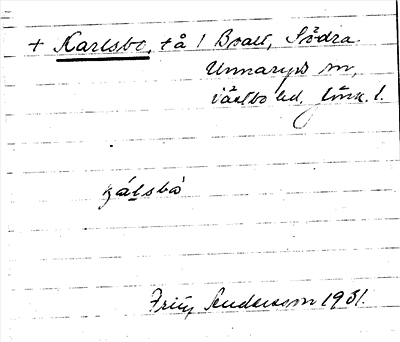 + Karlsbo, tå 1 Bratt, Södra
Unnaryds sn,
Västbo hd, Jönk. l.
kálsbo
Fritz Andersson 1931.